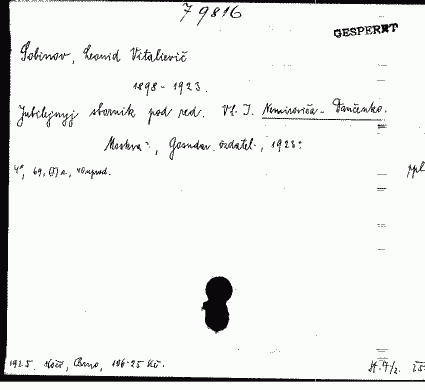 79816
GESPERRT
Sobinov, Leonid Vitalievič
1898-1923.
Jubilejnyj sbornik pod red. Vl. I. Nemiroviča-Dančenko.
Moskva, Gosudar. izdatel., 1923.
4°, 69, (I) s.,
ppl
1925. Brno, 106.25 Kč.